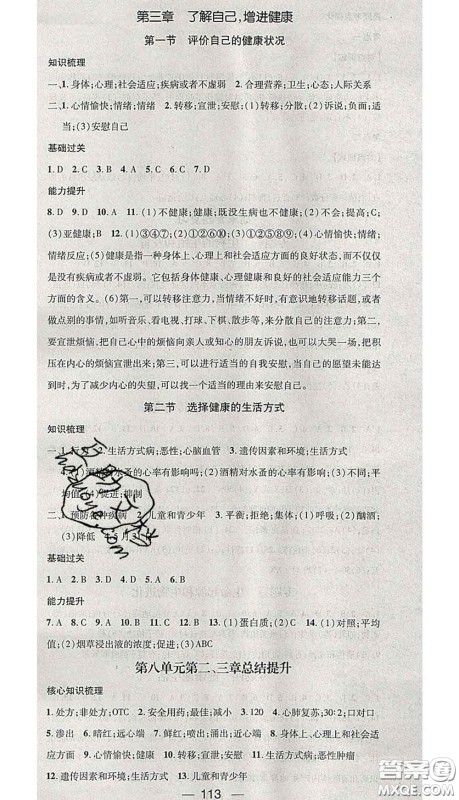 第三章　了解自己,增进健康
第一节　评价自己的健康状况
知识梳理
一、1. 身体;心理;社会适应;疾病或者不虚弱　2. 合理营养;卫生;心态;人际关系
二、1. 心情愉快;情绪;情绪　2. 转移;宣泄;安慰　(1)转移;分散;(2)诉说;负面;适
当;(3)安慰自己
基础过关
1. D　2. C　3. B　4. A　5. B　6. C　7. D
能力提升
8. D　9. D　10. A　11. (1)不健康;健康;既没生病也不健康;(2)不会;提高;C;
(3)亚健康;B　12. (1)③④⑦;(2)①②⑥⑩;(3)①②⑤⑧⑨;(4)心情愉快;情绪;
情绪反应;(5)健康是指一种身体上、心理上和社会适应方面的良好状态,而不仅仅
是没有疾病或者不虚弱。它包括身体健康、心理健康和良好的社会适应能力三个
方面的含义。(6)第一,可以转移注意力,当情绪不好时,有意识地转移话题,或者
做点别的事情,如听音乐、看电视、打球、下棋、散步等,来分散自己的注意力;第二,
要宣泄烦恼,把自己心中的烦恼向亲人或知心的朋友诉说,也可以大哭一场,把积
压在内心的烦恼宣泄出来;第三,可以进行适当的自我安慰,当自己的愿望未能达
到时,为了减少内心的失望,可以找一个适当的理由来安慰自己。
第二节　选择健康的生活方式
知识梳理
一、1. 行为　2. 生活方式病;恶性;心脑血管　3. 遗传因素和环境;生活方式
4. (1)酒精对水蚤的心率有影响吗;(2)酒精对水蚤的心率有影响;(3)不同;平
均值;(4)促进;抑制
二、1. 预防各种疾病　2. 儿童和青少年　3. 平衡;拒绝;集体;(1)呼吸;(2)酗酒;
(3)降低　4. 5月31日
基础过关
1. A　2. B　3. C　4. D　5. A　6. B
能力提升
7. A　8. C　9. A　10. A　11. B　12. A　13. (1)蛋白质;(2)BC　14. (1)对照;平均
值;(2)烟草浸出液的浓度;促进;(3)ABC
第八单元第二、三章总结提升
核心知识梳理
1. 处方;非处方;OTC　2. 安全用药;最佳;最小　3. 120　4. 心肺复苏;30:2;口对口
5. 渗出　6. 暗红;远端;手指　7. 鲜红;指压;近端　8. 身体上、心理上和社会适
应方面　9. 心情愉快　10. 生活方式;慢性病;生活方式病　11. 恶性肿瘤
12. 遗传因素和环境;生活方式　13. 儿童和青少年
113
答案圈
MXQE.COM